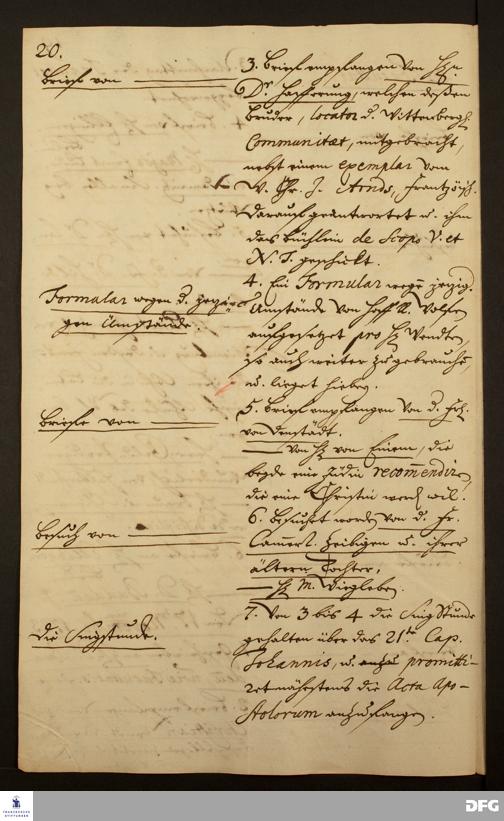 20.
Briefe von
3. Brief empfangen von H.n
Dr. welchen deßen
Bruder, locator d. Wittenberg.
Communitæt, mitgebracht,
nebst einem exemplar vom
W. Chr. J. Arnds, Frantzöß.
darauf geantwortet u. ihm
das büchlein de Scopo V. et
N. T. geschickt.
Formular wegen d. jetzi-
gen Umstände.
4. Ein Formular wegen jetzig.
Umstände von Hoff R.
aufgesetzet pro H. Wendten,
so auch weiter zu gebrauchen
u. lieget hiebey.
Briefe von
5. Brief empfangen von d. Fr.
von Denstädt.
von H. von Einem, die
beyde eine Jüdin recommendiren,
die eine Christin werden wil.
Besuch von
6. Besuchet worden von d. Fr.
Cammerl. u. ihrer
ältern Tochter,
H. M. Wiegleben.
Die Singstunde.
7. Von 3 bis 4 die Sing Stunde
gehalten über das 21te Cap.
Johannis, u. promitti-
ret nähstens die Acta Apo-
stolorum anzufangen.
FRANCKESCHE
STIFTUNGEN
DFG